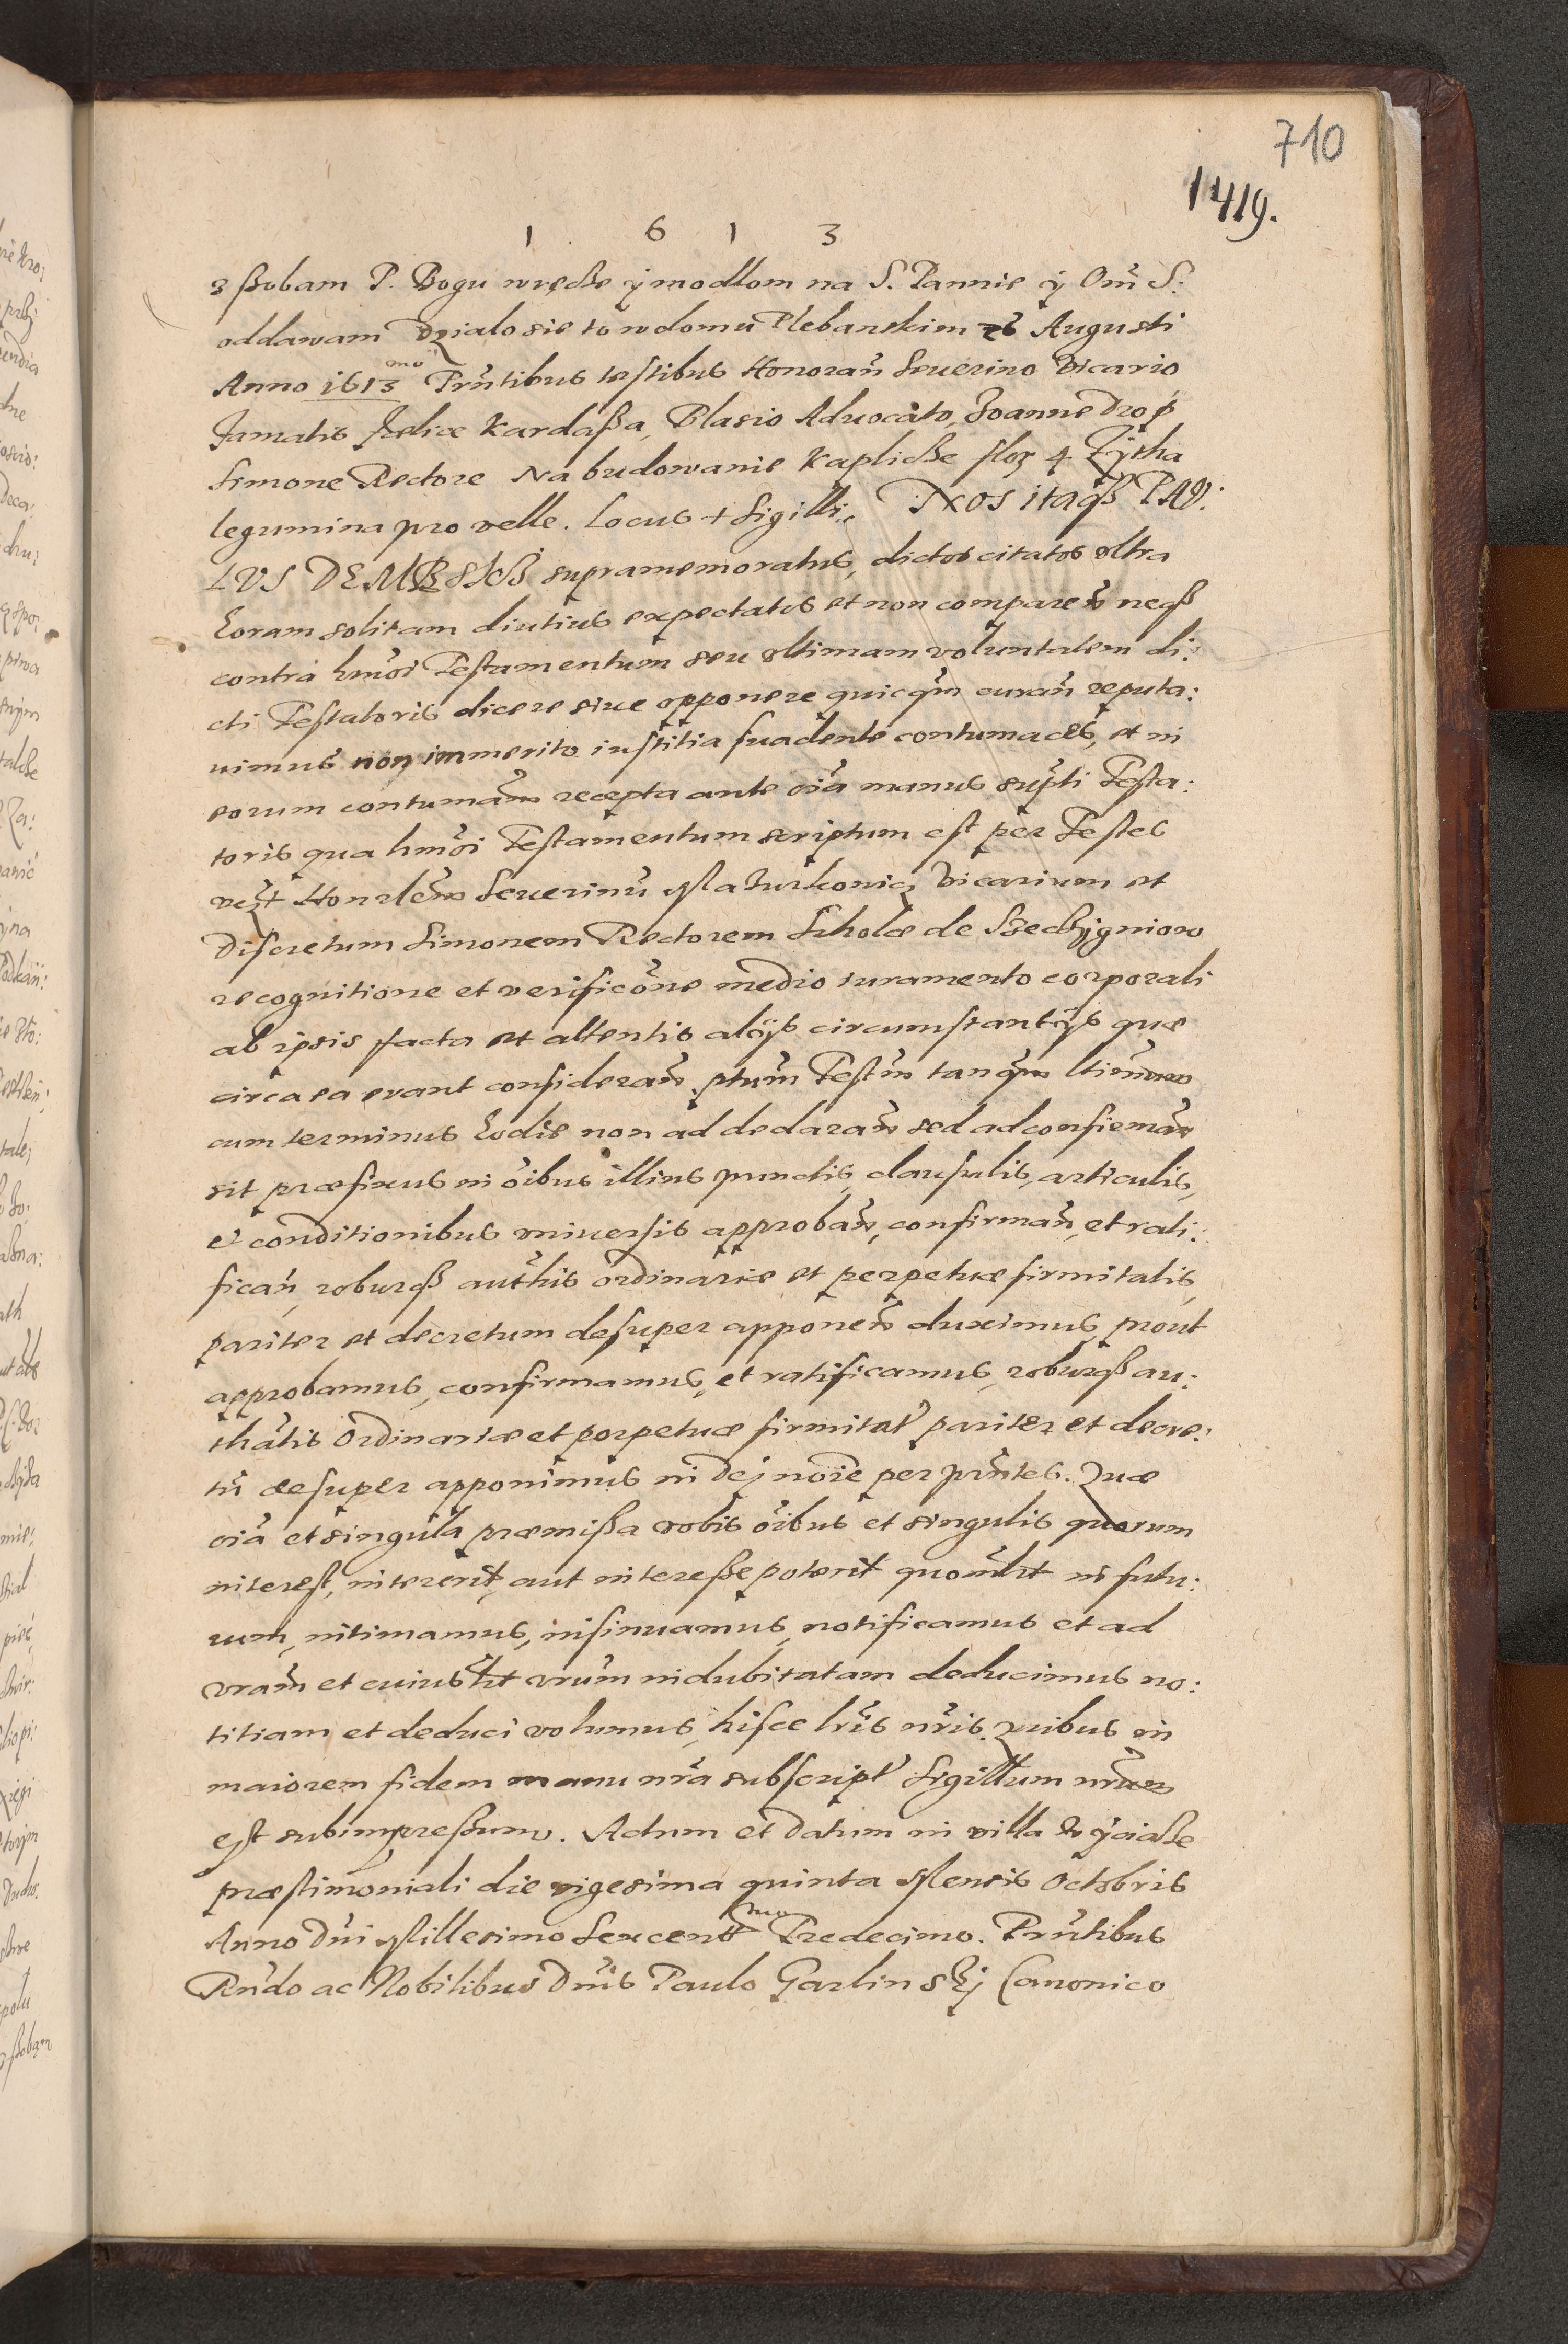 710
1419.
1 6 1 3
z ßobam P. Bogu wręcße ÿ modłom na S. Pannie ÿ Om̃ S:
oddawam Działo sie to w domu Plebanskim 26 Augusti
Anno 1613 mo Prñtibus testibus Honorañ Seuerino Vicario
Famatis Felice Kardaßa, Blasio Aduocato, Joanne Drop
Simone Rectore Na budowanie Kaplicße 4 Zÿtha
legumina pro velle. Locus + Sigilli. NOS itaqß PAV:
LVS DEMBSKI supramemoratus, dictos citatos vltra
horam solitam diutius expectatos et non compareñ neqß
contra hm̃oi Testamentum seu vltimam voluntatem di:
cti Testatoris dicere siue opponere quicq̃m curañ reputa:
uimus non immerito iustitia suadente contumaces, et in
eorum contumañ recepta ante oĩa manus supti Testa:
toris qua hm̃oi Testamentum scriptum est per Testes
vezt Honrleñ Seuerinũ Maturkowic Vicarium et
Discretum Simonem Rectorem Scholæ de
recognitione et verificõne medio iuramento corporali
ab ipsis facta et attentis alÿs circumstantÿs quæ
circa ea erant considerañ. ptum̃ Testm̃ tanq̃m
cum terminus hodie non ad declarañ sed ad confirmañ
sit præfixus in oĩbus illius punctis, clausulis, articulis,
et conditionibus vniuersis approbañ, confirmañ, et rati:
ficañ, roburqß authis ordinariæ et perpetuæ firmitatis,
pariter et decretum desuper apponeñ duximus, prout
approbamus, confirmamus, et ratificamus, roburqß au:
thãtis Ordinariæ et perpetuæ firmitat' pariter et decre:
tũ desuper apponimus in Dej noĩe per prñtes. Quæ
oĩa et singula præmißa vobis oĩbus et singulis quorum
interest, intererit, aut intereße poterit quom̃lt in futu:
rum, intimamus, insinuamus, notificamus et ad
vrañ et cuiuslt vrũm indubitatam deducimus no:
titiam et deduci volumus, hisce lrĩs nrĩs. Quibus in
maiorem fidem manu nrã subscript' Sigillum nrũm
est subimpreßum. Actum et Datum in villa
præstimoniali die vigesima quinta Mensis Octobris
Anno Dñi Millesimo Sexcent mo Tredecimo. Prñtibus
Rñdo ac Nobilibus Dñis Paulo Garlinskj Canonico